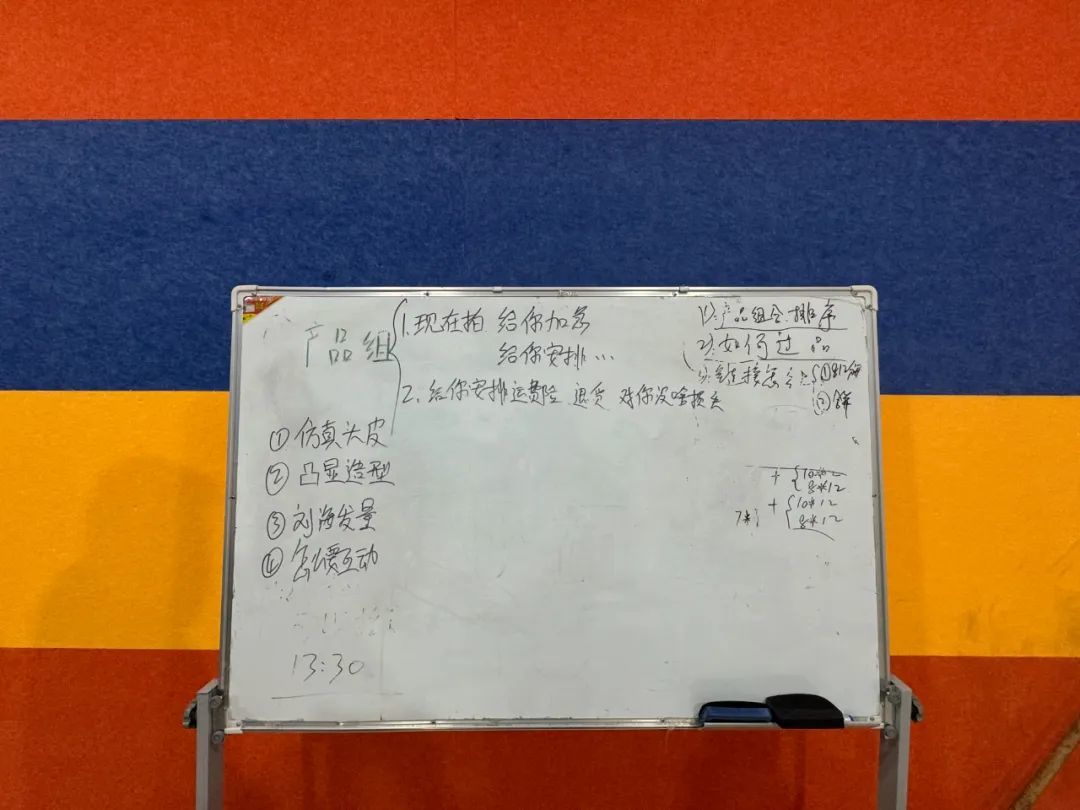 产品组
1.现在拍 给你加急
给你安排…
2.给你安排运费险 退货 对你没啥损失
① 仿真头皮
② 凸显造型
③ 刘海发量
④ 怎么要互动
13:30
1).产品组合.排序
2).如何过品
3).链接怎么
①
②
+ { 10*12
8*12
+ { 10*12
8*12